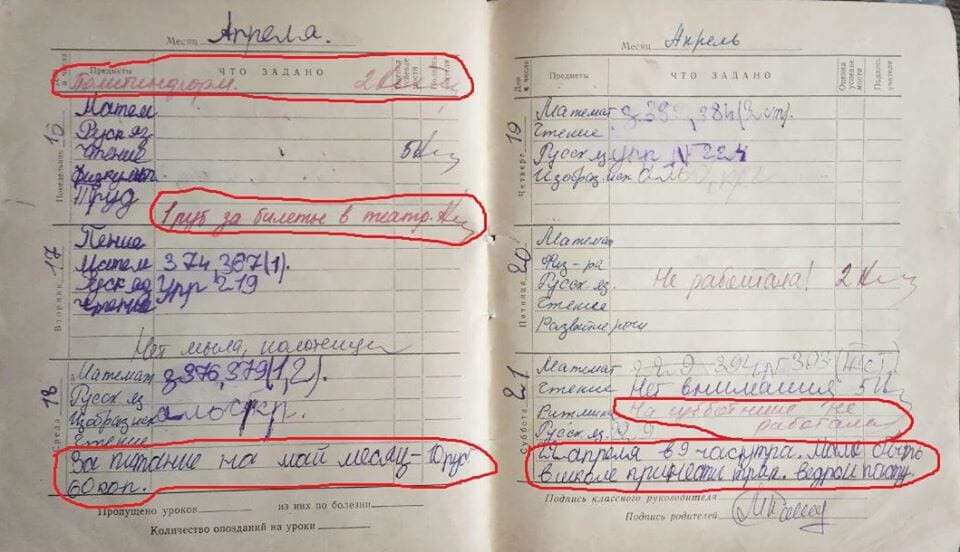 Месяц Апреля.
Предметы ЧТО ЗАДАНО
Политинформ. 2
Понедельник 16
Матем
Русск яз
Чтение 5
Физкульт.
Труд
1 руб за билеты в театр.
Вторник 17
Пение
Матем 374, 367(1).
Русск яз Упр 219
Чтение
Нет мыла, полотенца
Среда 18
Математ з 376, 379(1,2).
Русск яз
Изобраз иск
Чтение
За питание на май месяц - 10 руб
60 коп.
Пропущено уроков из них по болезни
Количество опозданий на уроки
Месяц Апрель
Дни и числа Предметы ЧТО ЗАДАНО Оценка успеваемости Подпись учителя
Четверг 19
Математ 384 (2 ст)
Чтение
Русск яз упр N 224
Изобраз иск
Пятница 20
Математ
Физ-ра
Русск яз. Не работала! 2
Чтение
Развитие речи
Суббота 21
Математ
Чтение Нет внимания
Ритмика На субботнике не
Русск яз. работала
апреля в 9 час утра. Мыла быть
в школе принести тряп. ведро и пасту.
Подпись классного руководителя
Подпись родителей